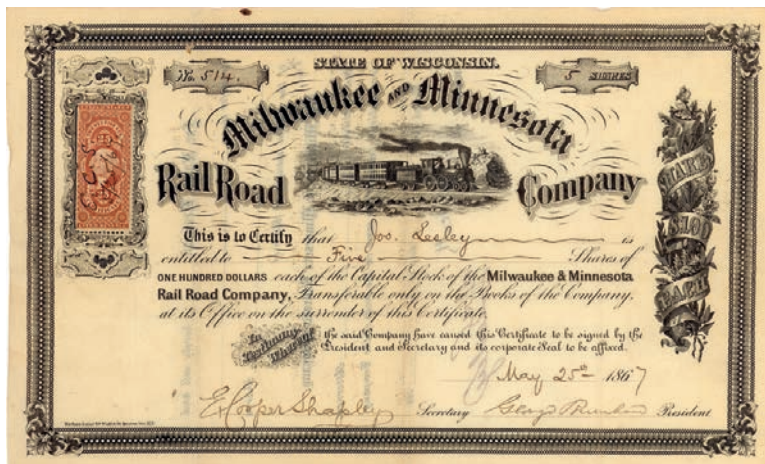 STATE OF WISCONSIN.
No. 514.
5 SHARES
Milwaukee AND Minnesota
Rail Road Company
This is to Certify that Jos. Lesley is
entitled to Five Shares of
ONE HUNDRED DOLLARS each of the Capital Stock of the Milwaukee & Minnesota
Rail Road Company, Transferable only on the Books of the Company,
at its Office on the surrender of this Certificate.
In Testimony Whereof the said Company have caused this Certificate to be signed by the
President and Secretary and its corporate Seal to be affixed.
May 25th 1867
E. Cooper Shapley Secretary George President
SHARES
$100
EACH